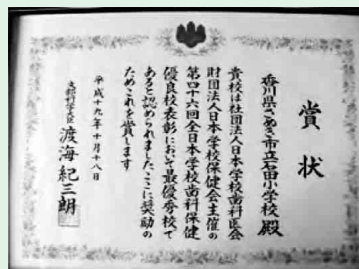 賞状
香川県さぬき市立石田小学校 殿
貴校は社団法人日本学校歯科医会
財団法人日本学校保健会主催の
第四十六回全日本学校歯科保健
優良校表彰において最優秀校で
あると認められました ここに奨励の
ためこれを賞します
平成十九年十月十八日
文部科学大臣 渡海紀三朗